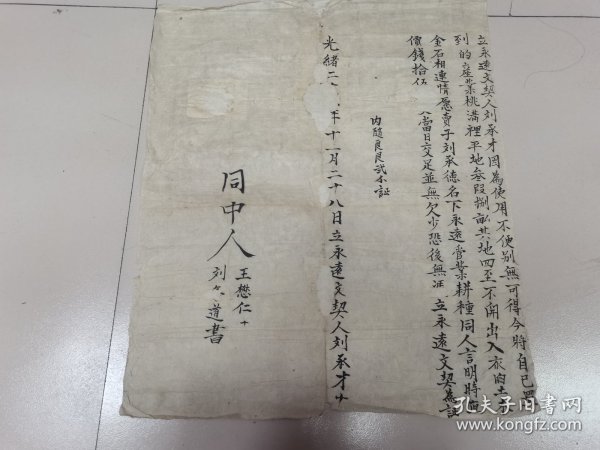 立永遠文契人刘承才因為使用不便别無可得今将自已置
到的产業桃溝裡平地叁段捌畝其地四至不開出入衣旧土木
金石相連情愿賣于刘承德名下永遠管業耕種同人言明時值
價錢拾伍 當日交足並無欠少恐後無证 立永遠文契為証
内隨良民弍小証
光緒二 年十一月二十八日立永遠文契人刘承才十
同中人
王懋仁十
刘 道書
孔夫子旧书网
www.kongfz.com